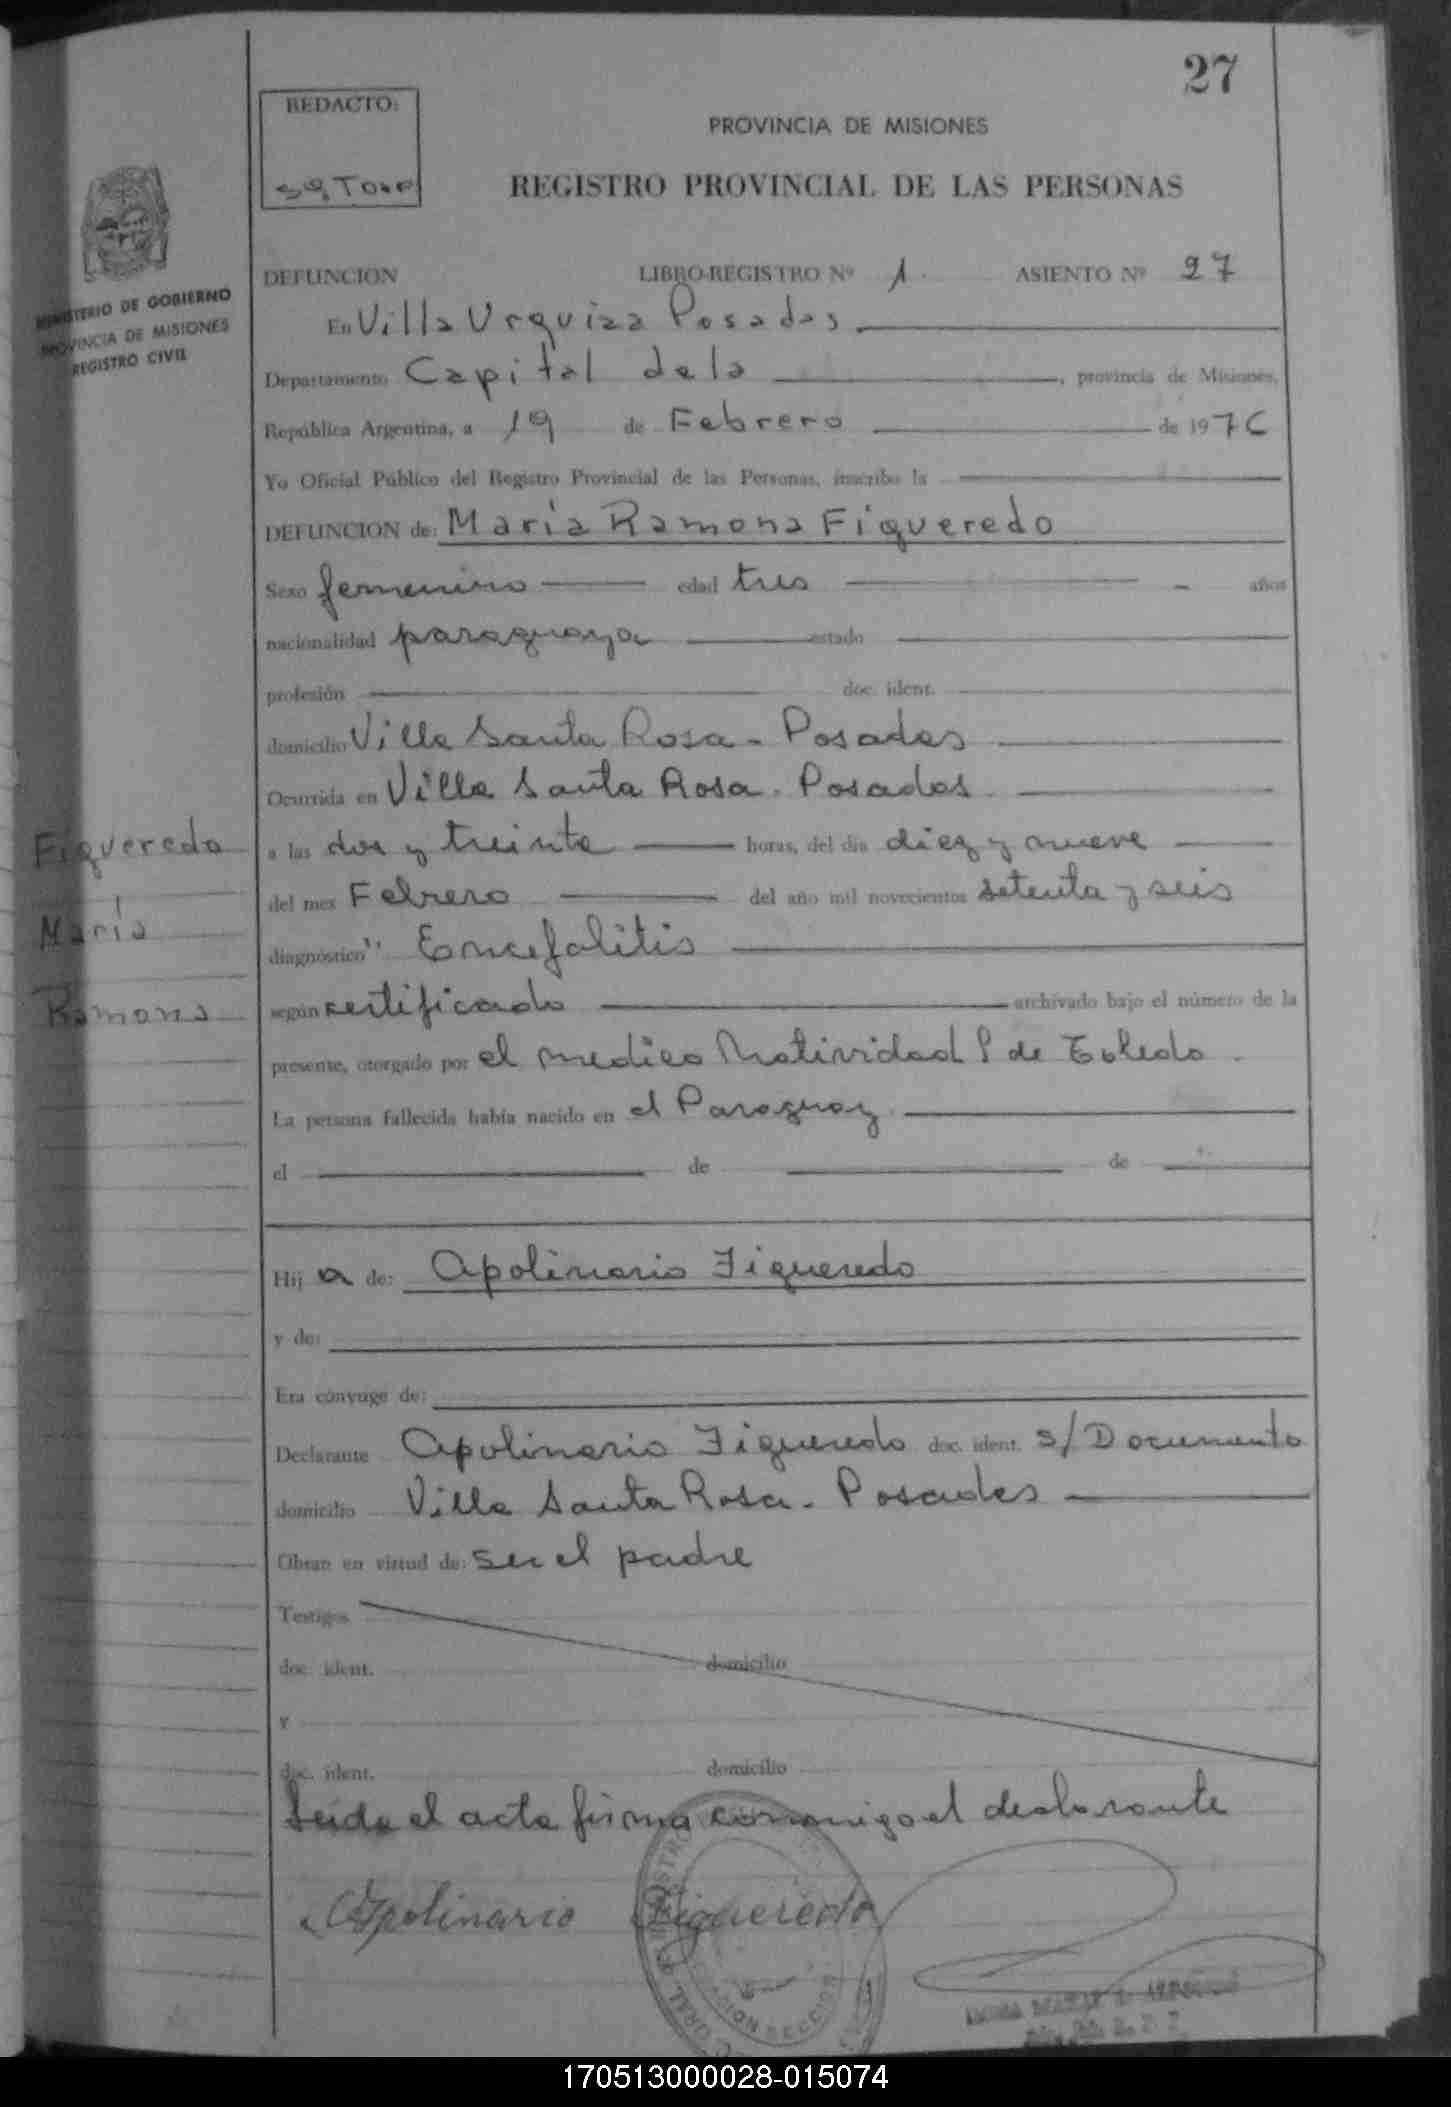 27
REDACTO:
PROVINCIA DE MISIONES
REGISTRO PROVINCIAL DE LAS PERSONAS
MINISTERIO DE GOBIERNO
PROVINCIA DE MISIONES
REGISTRO CIVIL
DEFUNCION LIBRO-REGISTRO Nº 1 ASIENTO Nº 27
En Villa Urquiza Posadas
Departamento Capital dela , provincia de Misiones,
República Argentina, a 19 de Febrero de 1976
Yo Oficial Público del Registro Provincial de las Personas, inscribo la
DEFUNCION de: María Ramona Figueredo
Sexo femenino edad tres - años
nacionalidad paraguaya estado
profesión doc. ident.
domicilio Villa Santa Rosa - Posadas
Ocurrida en Villa Santa Rosa - Posadas
Figueredo
a las dos y treinta horas, del día diez y nueve
del mes Febrero del año mil novecientos setenta y seis
María
diagnóstico " Encefalitis
Ramona
según certificado archivado bajo el número de la
presente, otorgado por el medico Natividad de Toledo
La persona fallecida había nacido en el Paraguay
el de de
Hij a de: Apolinario Figueredo
y de:
Era cónyuge de:
Declarante Apolinario Figueredo doc. ident. s/Documento
domicilio Villa Santa Rosa - Posadas
Obran en virtud de: ser el padre
Testigos
doc. ident. domicilio
y
doc. ident. domicilio
Leida el acta firma conmigo el declarante
Apolinario Figueredo
170513000028-015074